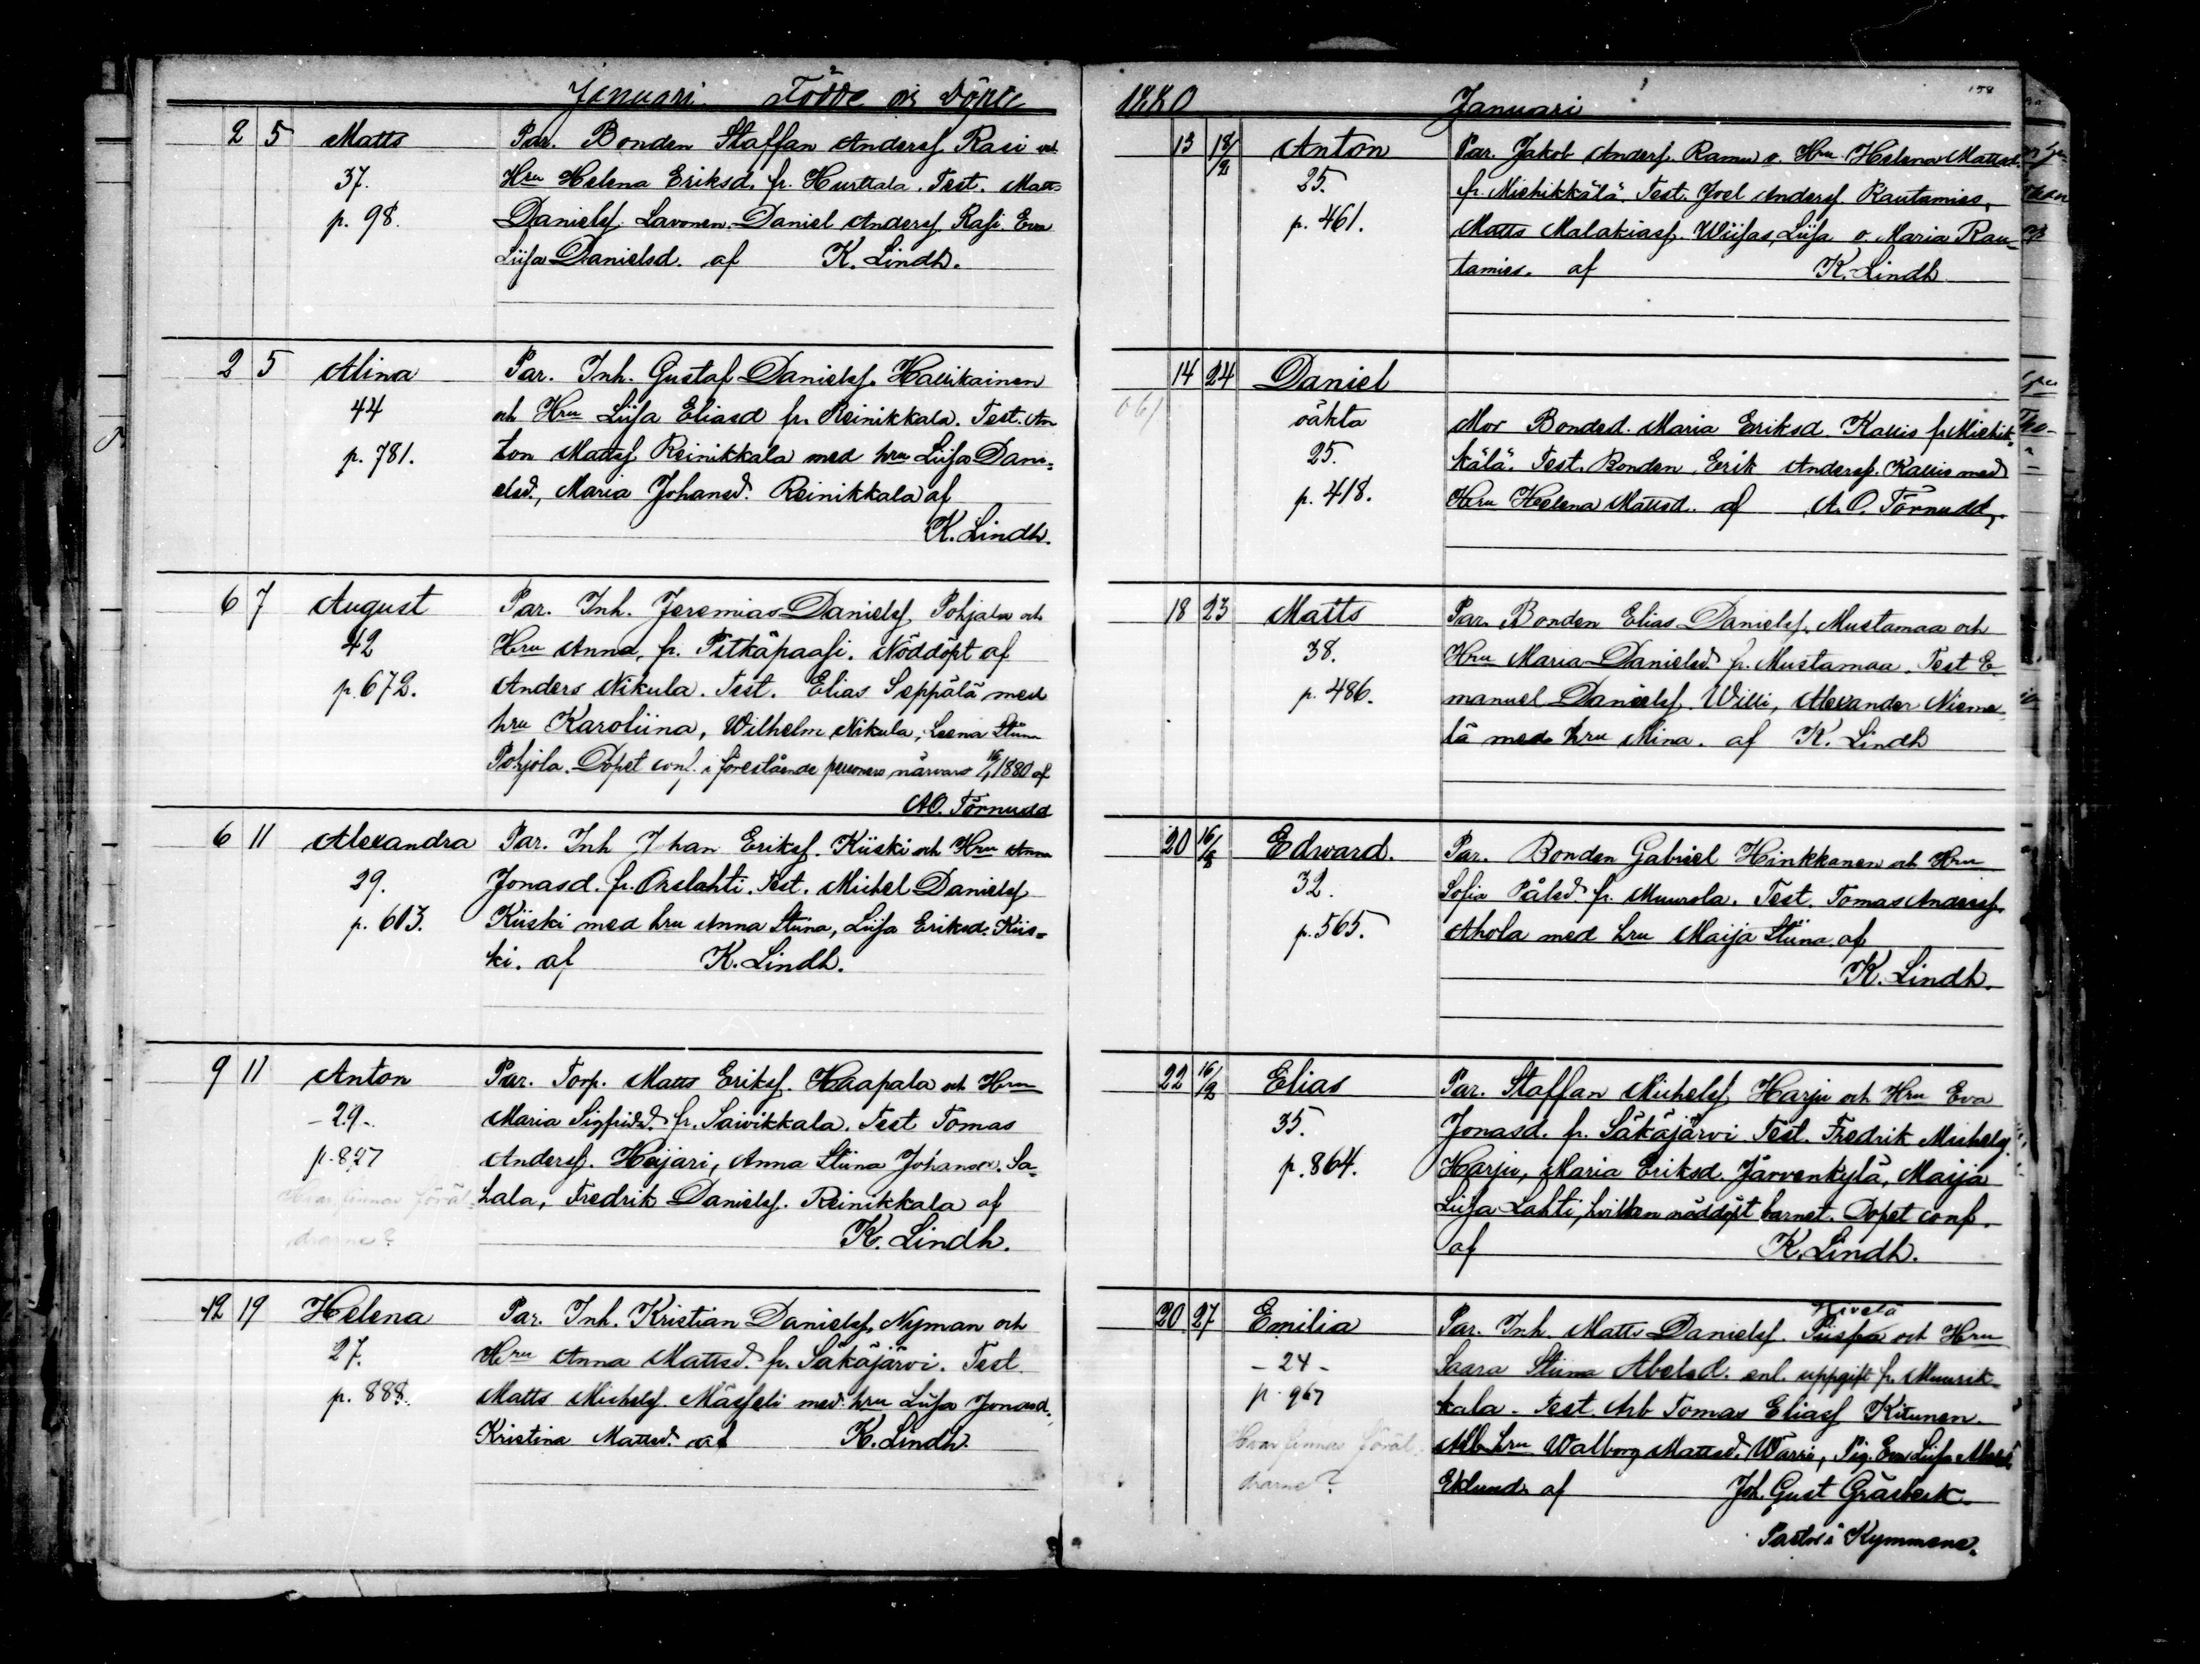 Januari Födde och Döpte
2 5 Matts Par. Bonden Staffan Andersf. Rasi och
37. Hru Helena Eriksd. fr. Hurttala. Test. Matts
p. 98. Danielsf. Lavonen. Daniel Andersf. Rasi. Eva
Liisa Danielsd. af K. Lindh.
2 5 Alina Par. Inh. Gustaf Danielsf. Haikainen
44 och Hru Liisa Eliasd fr. Reinikkala. Test. An
p. 781. ton Mattsf. Reinikkala med hru Liisa Dani-
elsd., Maria Johansd. Reinikkala af
K. Lindh.
6 7 August Par. Inh. Jeremias Danielsf. Pohjala och
42 Hru Anna, fr. Pitkäpaasi. Nöddöpt af
p. 672. Anders Nikula. Test. Elias Seppälä med
hru Karoliina, Wilhelm Nikula, Leena Stiina
Pohjola. Dopet conf. i förestående personers närvaro 16/1 1880 af
A.O. Törnudd
6 11 Alexandra Par. Inh Johan Eriksf. Kiiski och Hru Anna
29. Jonasd. fr. Orslahti. Test. Michel Danielsf.
p. 613. Kiiski med hru Anna Stiina, Liisa Eriksd. Kiis-
ki. af K. Lindh.
9 11 Anton Par. Torp. Matts Eriksf. Haapala och Hru
- 29 - Maria Sigfridsd. fr. Saivikkala. Test Tomas
p. 827 Andersf. Heijari, Anna Stiina Johansd. Sa-
Hvar finnas föräl- hala, Fredrik Danielsf. Reinikkala af
drarne? K. Lindh.
12 19 Helena Par. Inh. Kristian Danielsf. Nyman och
27. Hru Anna Mattsd. fr. Säkäjärvi. Test
p. 888. Matts Michelsf. Mässeli med hru Liisa Jonasd.,
Kristina Mattsd. af K. Lindh.
1880 Januari 158
13 18/2 Anton Par. Jakob Andersf. Ramu o. Hru Helena Mattsd.
25. fr. Miehikkälä. Test. Joel Andersf. Rautamies,
p. 461. Matts Malakiasf. Wiisas, Liisa o. Maria Rau-
tamies. af K. Lindh
14 24 Daniel
oäkta Mor Bonded. Maria Eriksd. Kallis fr. Miehik-
25. kälä. Test. Bonden Erik Andersf. Kallis med
p. 418. Hru Helena Mattsd. af A. O. Törnudd,
18 23 Matts Par. Bonden Elias Danielsf. Mustamaa och
38. Hru Maria Danielsd. fr. Mustamaa. Test E-
p. 486. manuel Danielsf. Willi, Alexander Nieme-
lä med hru Mina. af K. Lindh
20 16/2 Edward. Par. Bonden Gabriel Hinkkanen och Hru
32. Sofia Pålsd. fr. Muurola. Test. Tomas Andersf.
p. 565. Ahola med hru Maija Stiina af
K. Lindh.
22 16/2 Elias Par. Staffan Michelsf. Harju och Hru Eva
35. Jonasd. fr. Säkäjärvi Test. Fredrik Michelsf.
p. 864. Harju, Maria Eriksd. Järvenkylä, Maija
Liisa Lahti, hvilken nöddöpt barnet. Dopet conf.
af K. Lindh.
Kivelä
20 27 Emilia Par. Inh. Matts Danielsf. och Hru
- 24 - Saara Stiina Abelsd. enl. uppgift fr. Muurik-
p. 967 kala. Test. Arb Tomas Eliasf Kitunen.
Hvar finnas föräl- Arb hru Walborg Mattsd. Warri, Pig. Eva Liisa
drarne? Eklund af Joh. Gust Gråsbeck.
Pastor i Kymmene.